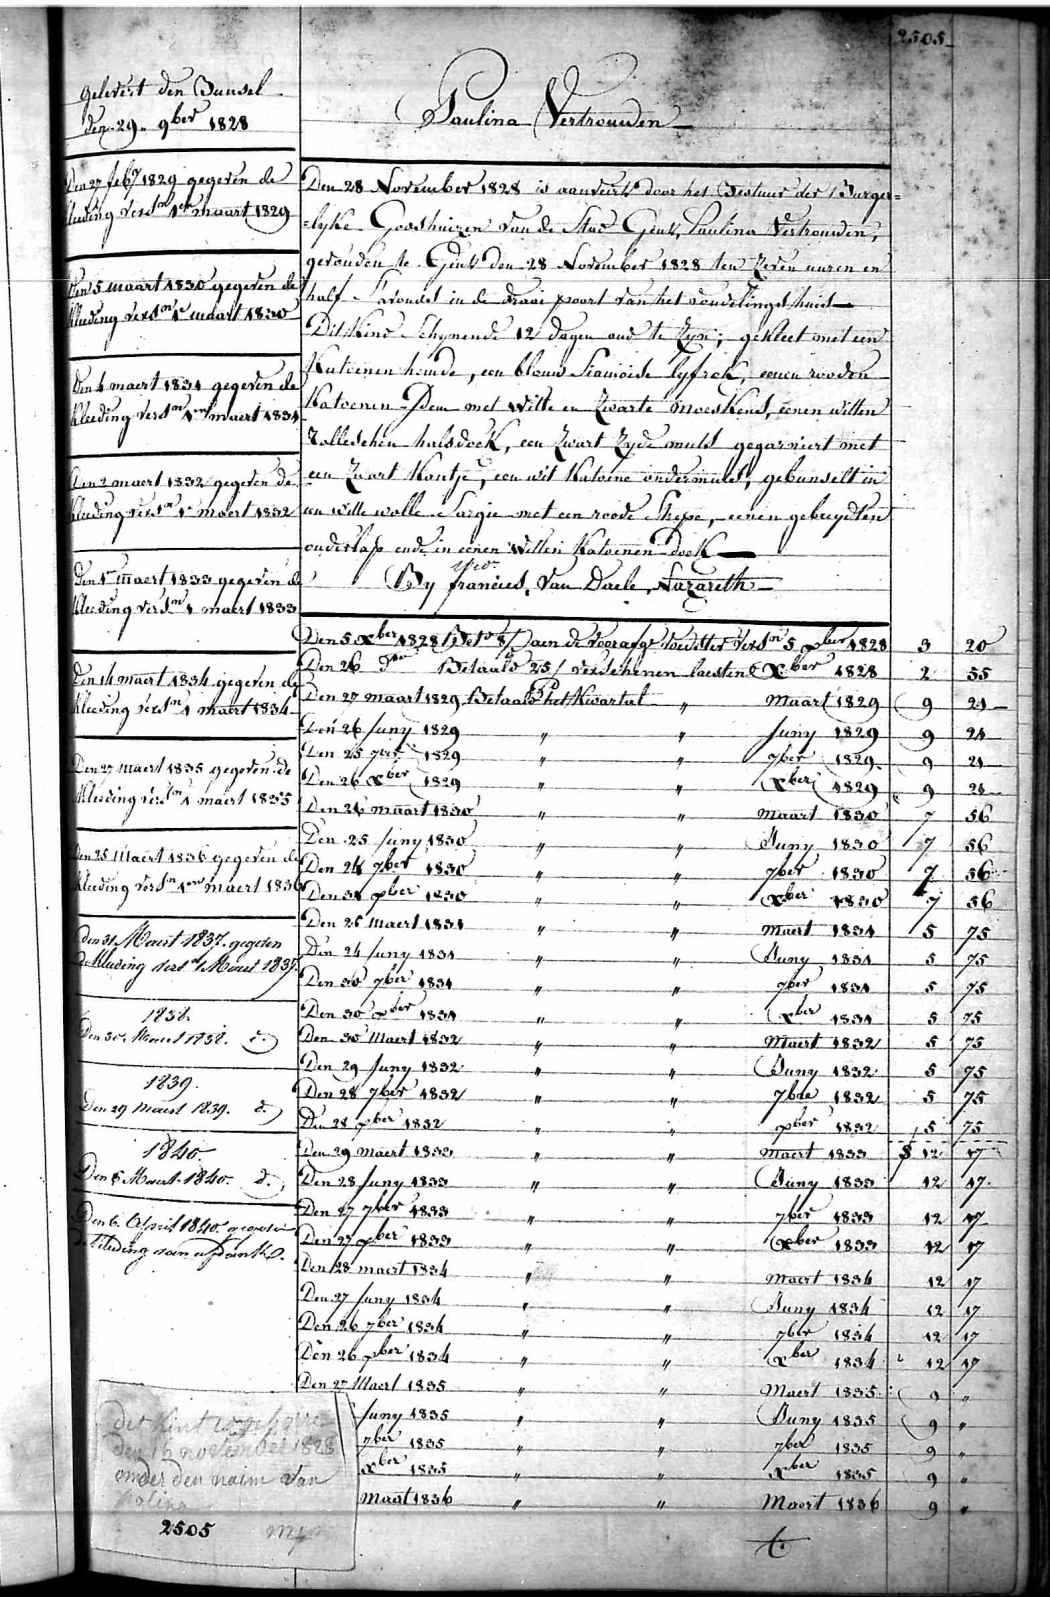 2505
Paulina Vertrouwen
gelevert den Bunsel
den 29 9ber 1828
Den 27 feby 1829 gegeven de
kleeding versn 1en maart 1829
Den 5 maart 1830 gegeven de
kleeding versn 1e maart 1830
Den 4 maert 1831 gegeven de
kleeding versn 1en maert 1831
Den 2 maert 1832 gegeven de
kleeding versn 1e maert 1832
Den 1r maert 1833 gegeven de
kleeding versn 1 maert 1833
Den 14 maert 1834 gegeven de
kleeding versn 1 maert 1834
Den 27 maert 1835 gegeven de
kleeding versn 1 maert 1835
Den 25 Maert 1836 gegeven de
kleeding versn 1en maert 1836
den 31 Maert 1837 gegeven
de kleeding versn 1 Maert 1837.
1838.
Den 30. Maert 1838. d.
1839.
Den 29 maert 1839. d.
1840.
Den 5 Maert 1840. d.
Den 6 April 1840 gegeven
de kleeding van
Den 28 November 1828 is aanveirt door het Bestuur der Burger=
=lyke Godshuizen van de Stad Gent, Paulina Vertrouwen,
gevonden te Gent den 28 November 1828 ten zeven uuren en
half s'avonds in de draai poort van het vondelingshuis
Dit kind schynende 12 dagen oud te zyn; gekleet met een
Katoenen hemde, een blouw Siamoise lyfrok, eenen rooden
Katoenen Dem met witte en zwarte moeskens, eenen witten
halsdoek, een zwart zyde muts gegarniert met
een zwart kantje, een wit katoene ondermuts, gebunselt in
een witte wolle Sargie met een roode Strepe, eenen
onderlap ende in eenen witten katoenen doek
By francies, Van Daele, Nazareth
Den 5 Xber 1828 aen de voedster versn 5 Xber 1828 3 20
Den 26 do Betaald 25/ verschenen laesten Xber 1828 2 55
Den 27 maart 1829 Betaald het Kwartal " maart 1829 9 21
Den 26 Juny 1829 " " Juny 1829 9 21
Den 25 7ber 1829 " " 7ber 1829 9 21
Den 26 Xber 1829 " " Xber 1829 9 21
Den 26 maart 1830 " " maart 1830 7 56
Den 25 Juny 1830 " " Juny 1830 7 56
Den 24 7ber 1830 " " 7ber 1830 7 56
Den 31 Xber 1830 " " Xber 1830 7 56
Den 25 maert 1831 " " maert 1831 5 75
Den 24 Juny 1831 " " Juny 1831 5 75
Den 30 7ber 1831 " " 7ber 1831 5 75
Den 30 Xber 1831 " " Xber 1831 5 75
Den 30 Maert 1832 " " Maert 1832 5 75
Den 29 Juny 1832 " " Juny 1832 5 75
Den 28 7ber 1832 " " 7bre 1832 5 75
Den 28 Xber 1832 " " Xber 1832 5 75
Den 29 maert 1833 " " maert 1833 12 17
Den 28 Juny 1833 " " Juny 1833 12 17
Den 27 7ber 1833 " " 7ber 1833 12 17
Den 27 Xber 1833 " " Xber 1833 12 17
Den 28 maert 1834 " " maert 1834 12 17
Den 27 Juny 1834 " " Juny 1834 12 17
Den 26 7ber 1834 " " 7ber 1834 12 17
Den 26 Xber 1834 " " Xber 1834 12 17
Den 27 Maert 1835 " " Maert 1835 9 "
Juny 1835 " " Juny 1835 9 "
7ber 1835 " " 7ber 1835 9 "
Xber 1835 " " Xber 1835 9 "
Maart 1836 " " Maert 1836 9 "
det kint
den november 1828
onder den naim van
2505